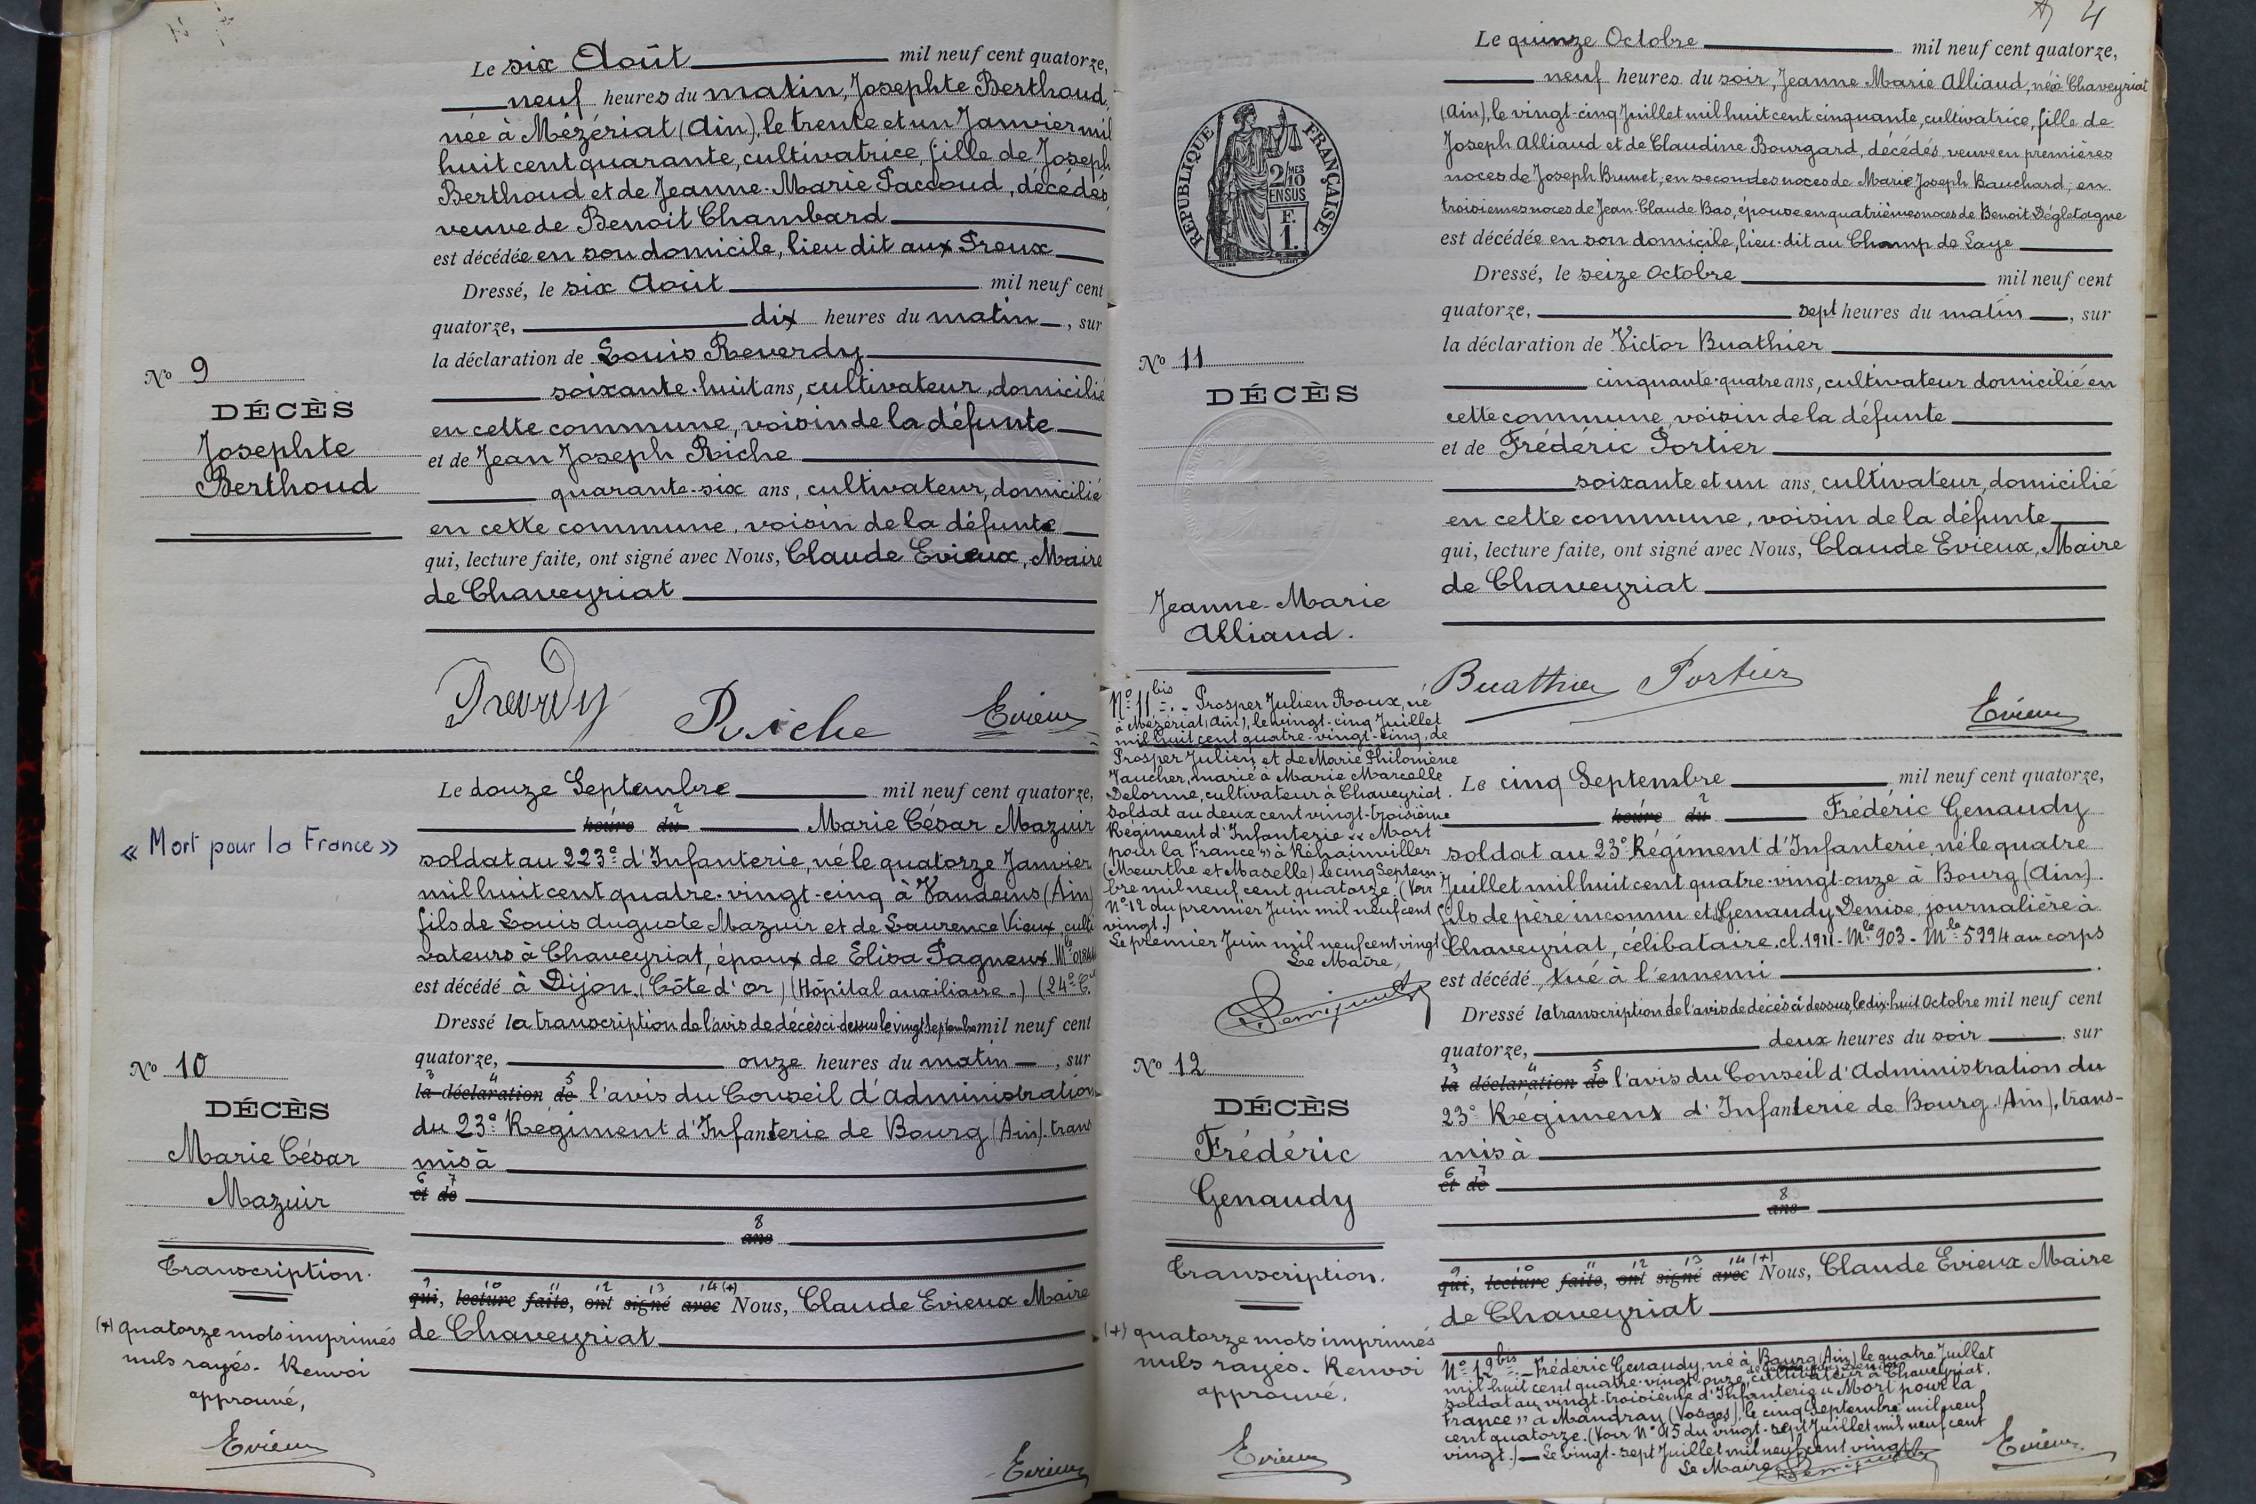 Le six Août mil neuf cent quatorze,
neuf heures du matin, Josephte Berthoud,
née à Mézériat (Ain), le trente et un Janvier mil
huit cent quarante, cultivatrice, fille de Joseph
Berthoud et de Jeanne-Marie Paccoud, décédés,
veuve de Benoit Chambard
est décédée en son domicile, lieu dit aux Preux
Dressé, le six Août mil neuf cent
quatorze, dix heures du matin, sur
la déclaration de Louis Reverdy
soixante-huit ans, cultivateur, domicilié
en cette commune, voisin de la défunte
et de Jean Joseph Riche
quarante-six ans, cultivateur, domicilié
en cette commune, voisin de la défunte
qui, lecture faite, ont signé avec Nous, Claude Evieux, Maire
de Chaveyriat
No 9
DÉCÈS
Josephte
Berthoud
Reverdy Riche Evieux
Le douze Septembre mil neuf cent quatorze,
heure du 2 Marie César Mazuir
soldat au 223e d'Infanterie, né le quatorze Janvier
mil huit cent quatre-vingt-cinq à Vandeins (Ain)
fils de Louis Auguste Mazuir et de Laurence Vieux, culti
vateurs à Chaveyriat, époux de Elisa Pagneux Mle 01844
est décédé à Dijon, (Côte d'or) (Hôpital auxiliaire-) (24e Cie
Dressé la transcription de l'avis de décès ci-dessus le vingt Septembre mil neuf cent
quatorze, onze heures du matin, sur
3 4 5
la déclaration de l'avis du Conseil d'administration
du 23e Régiment d'Infanterie de Bourg (Ain). trans
mis à
6 7
et de
8
ans
9 10 11 12 13 14 (+)
qui, lecture faite, ont signé avec Nous, Claude Evieux Maire
de Chaveyriat
« Mort pour la France »
No 10
DÉCÈS
Marie César
Mazuir
Transcription.
(+) quatorze mots imprimés
nuls rayés. Renvoi
approuvé,
Evieux
Evieux
4
Le quinze Octobre mil neuf cent quatorze,
neuf heures du soir, Jeanne Marie Alliaud, née Chaveyriat
(Ain), le vingt-cinq Juillet mil huit cent cinquante, cultivatrice, fille de
Joseph Alliaud et de Claudine Bourgard, décédés, veuve en premières
noces de Joseph Brunet, en secondes noces de Marie Joseph Bauchard, en
troisièmes noces de Jean-Claude Bas, épouse en quatrièmes noces de Benoit Dégletagne
est décédée en son domicile, lieu-dit au Champ de Laye
Dressé, le seize Octobre mil neuf cent
quatorze, sept heures du matin, sur
la déclaration de Victor Buathier
cinquante-quatre ans, cultivateur domicilié en
cette commune, voisin de la défunte
et de Frédéric Portier
soixante et un ans, cultivateur, domicilié
en cette commune, voisin de la défunte
qui, lecture faite, ont signé avec Nous, Claude Evieux, Maire
de Chaveyriat
RÉPUBLIQUE FRANÇAISE
2/MES
10
EN SUS
F.
1.
No 11
DÉCÈS
Jeanne-Marie
Alliaud.
Buathier Portier
Evieux
No 11 bis - Prosper Julien Roux, né
à Mézériat (Ain), le vingt-cinq Juillet
mil huit cent quatre-vingt-cinq, de
Prosper Julien et de Marie Philomène
Vaucher, marié à Marie Marcelle
Delorme, cultivateur à Chaveyriat.
Soldat au deux cent vingt-troisième
Régiment d'Infanterie « Mort
pour la France » à Réhainviller
(Meurthe et Moselle) le cinq Septem
bre mil neuf cent quatorze. (Voir
No 12 du premier Juin mil neuf cent
vingt.)
Le premier Juin mil neuf cent vingt
Le Maire,
Le cinq Septembre mil neuf cent quatorze,
heure du 2 Frédéric Genaudy
soldat au 23e Régiment d'Infanterie, né le quatre
Juillet mil huit cent quatre-vingt-onze à Bourg (Ain).
fils de père inconnu et Genaudy Denise, journalière à
Chaveyriat, célibataire. cl. 1911 - Mle 903 - Mle 5994 au corps
est décédé, tué à l'ennemi
Dressé la transcription de l'avis de décès ci-dessus, le dix-huit Octobre mil neuf cent
quatorze, deux heures du soir, sur
3 4 5
la déclaration de l'avis du Conseil d'Administration du
23e Régiment d'Infanterie de Bourg (Ain), trans-
mis à
6 7
et de
8
ans
9 10 11 12 13 14 (+)
qui, lecture faite, ont signé avec Nous, Claude Evieux Maire
de Chaveyriat
No 12
DÉCÈS
Frédéric
Genaudy
Transcription.
(+) quatorze mots imprimés
nuls rayés. Renvoi
approuvé.
Evieux
No 12 bis - Frédéric Genaudy, né à Bourg (Ain) le quatre Juillet
mil huit cent quatre-vingt-onze, cultivateur à Chaveyriat.
soldat au vingt-troisième d'Infanterie « Mort pour la
France » à Mandray (Vosges), le cinq Septembre mil neuf
cent quatorze. (Voir No 15 du vingt-sept Juillet mil neuf cent
vingt.) - Le vingt-sept Juillet mil neuf cent vingt
Le Maire
Evieux